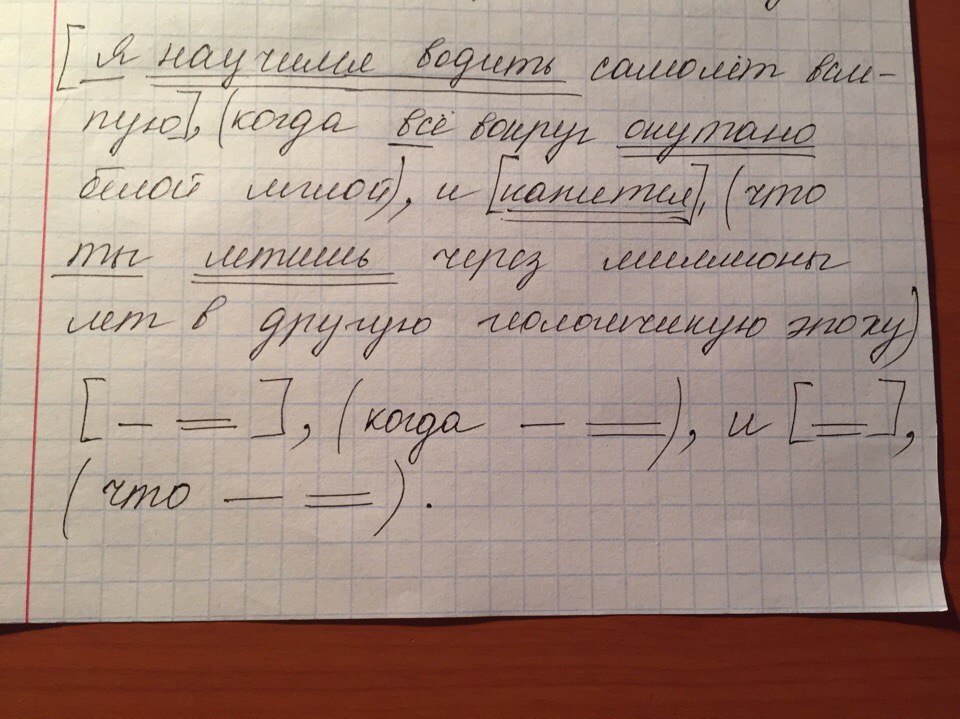 [Я научился водить самолёт всле-
пую], (когда всё вокруг окутано
белой мглой), и [кажется], (что
ты летишь через миллионы
лет в другую геологическую эпоху)
[– =], (когда – =), и [=],
(что – =).